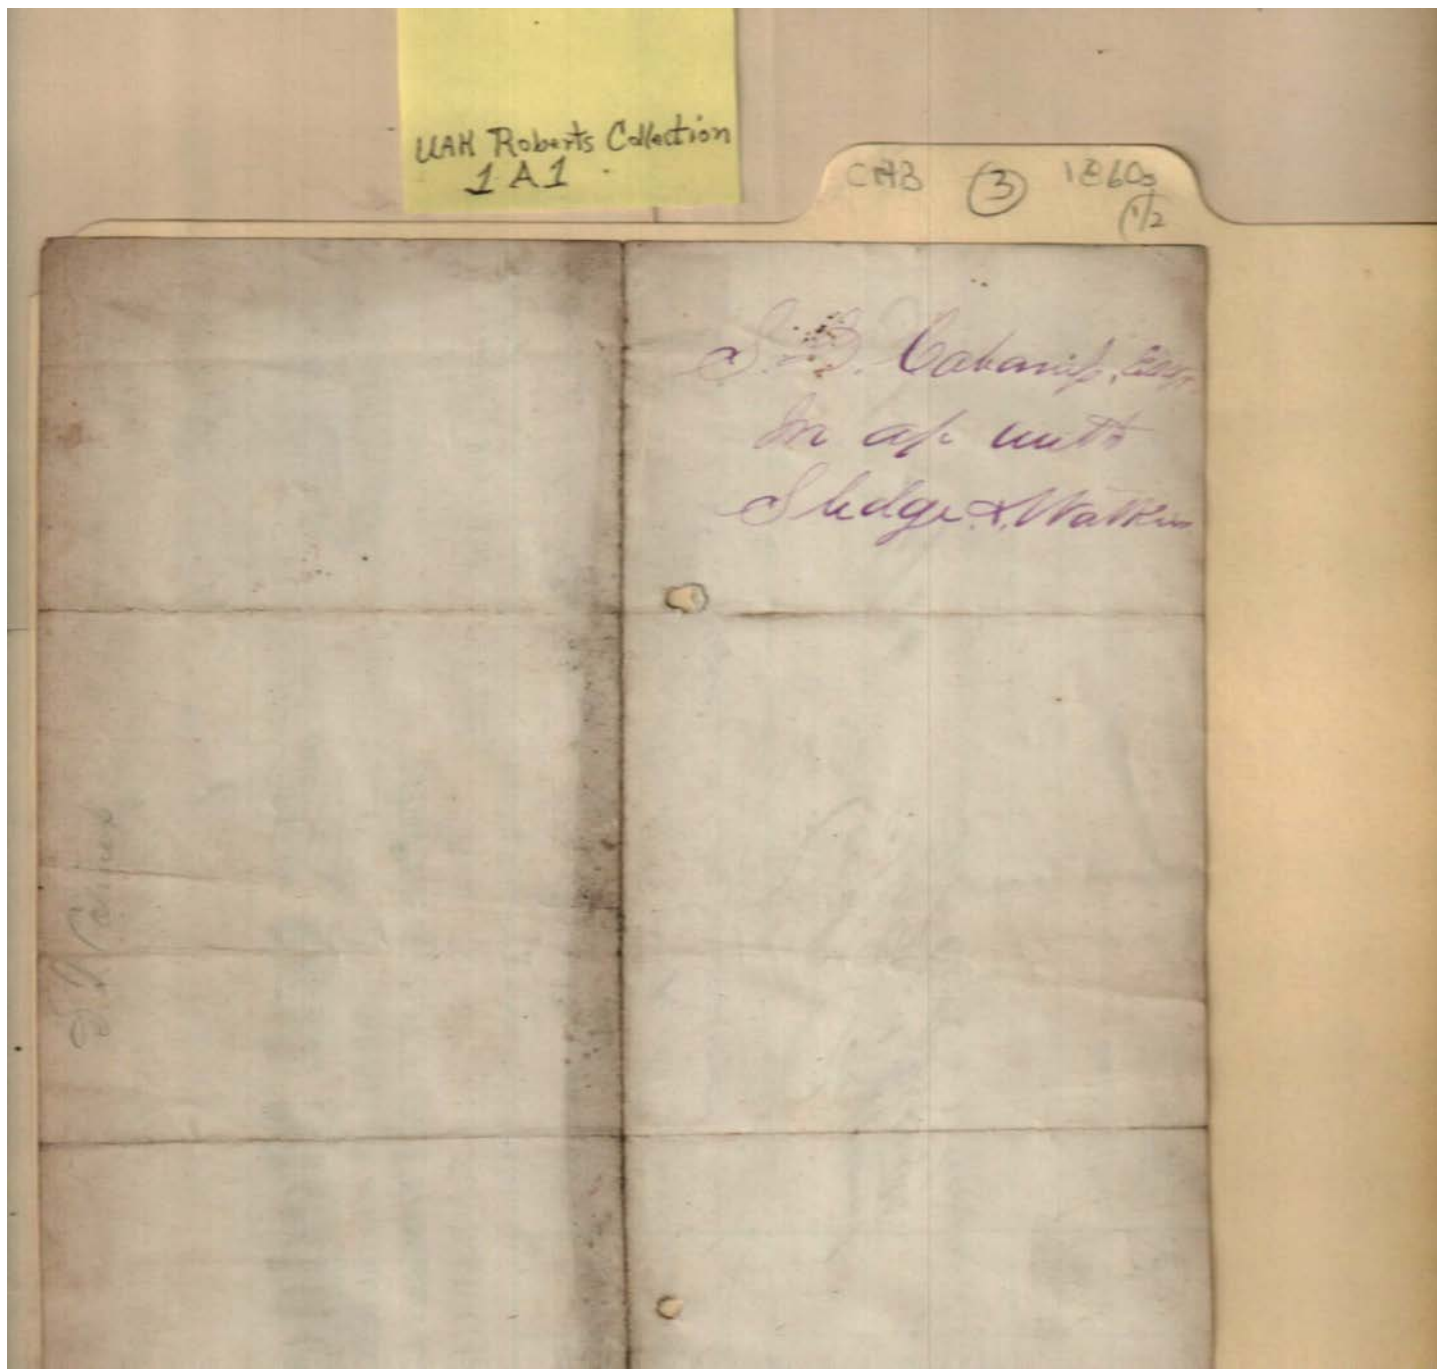 UAH Roberts Collection
1 A 1
CAB 3 1860s
1/2
S. D. Cabaniss, Esq.
In a/c with
Sludge & Watkins
S. D.